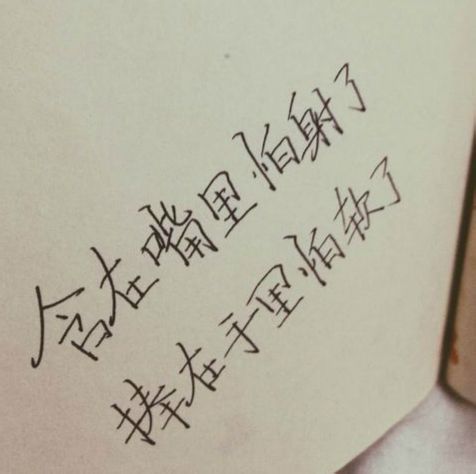 含在嘴里怕射了
捧在手里怕软了